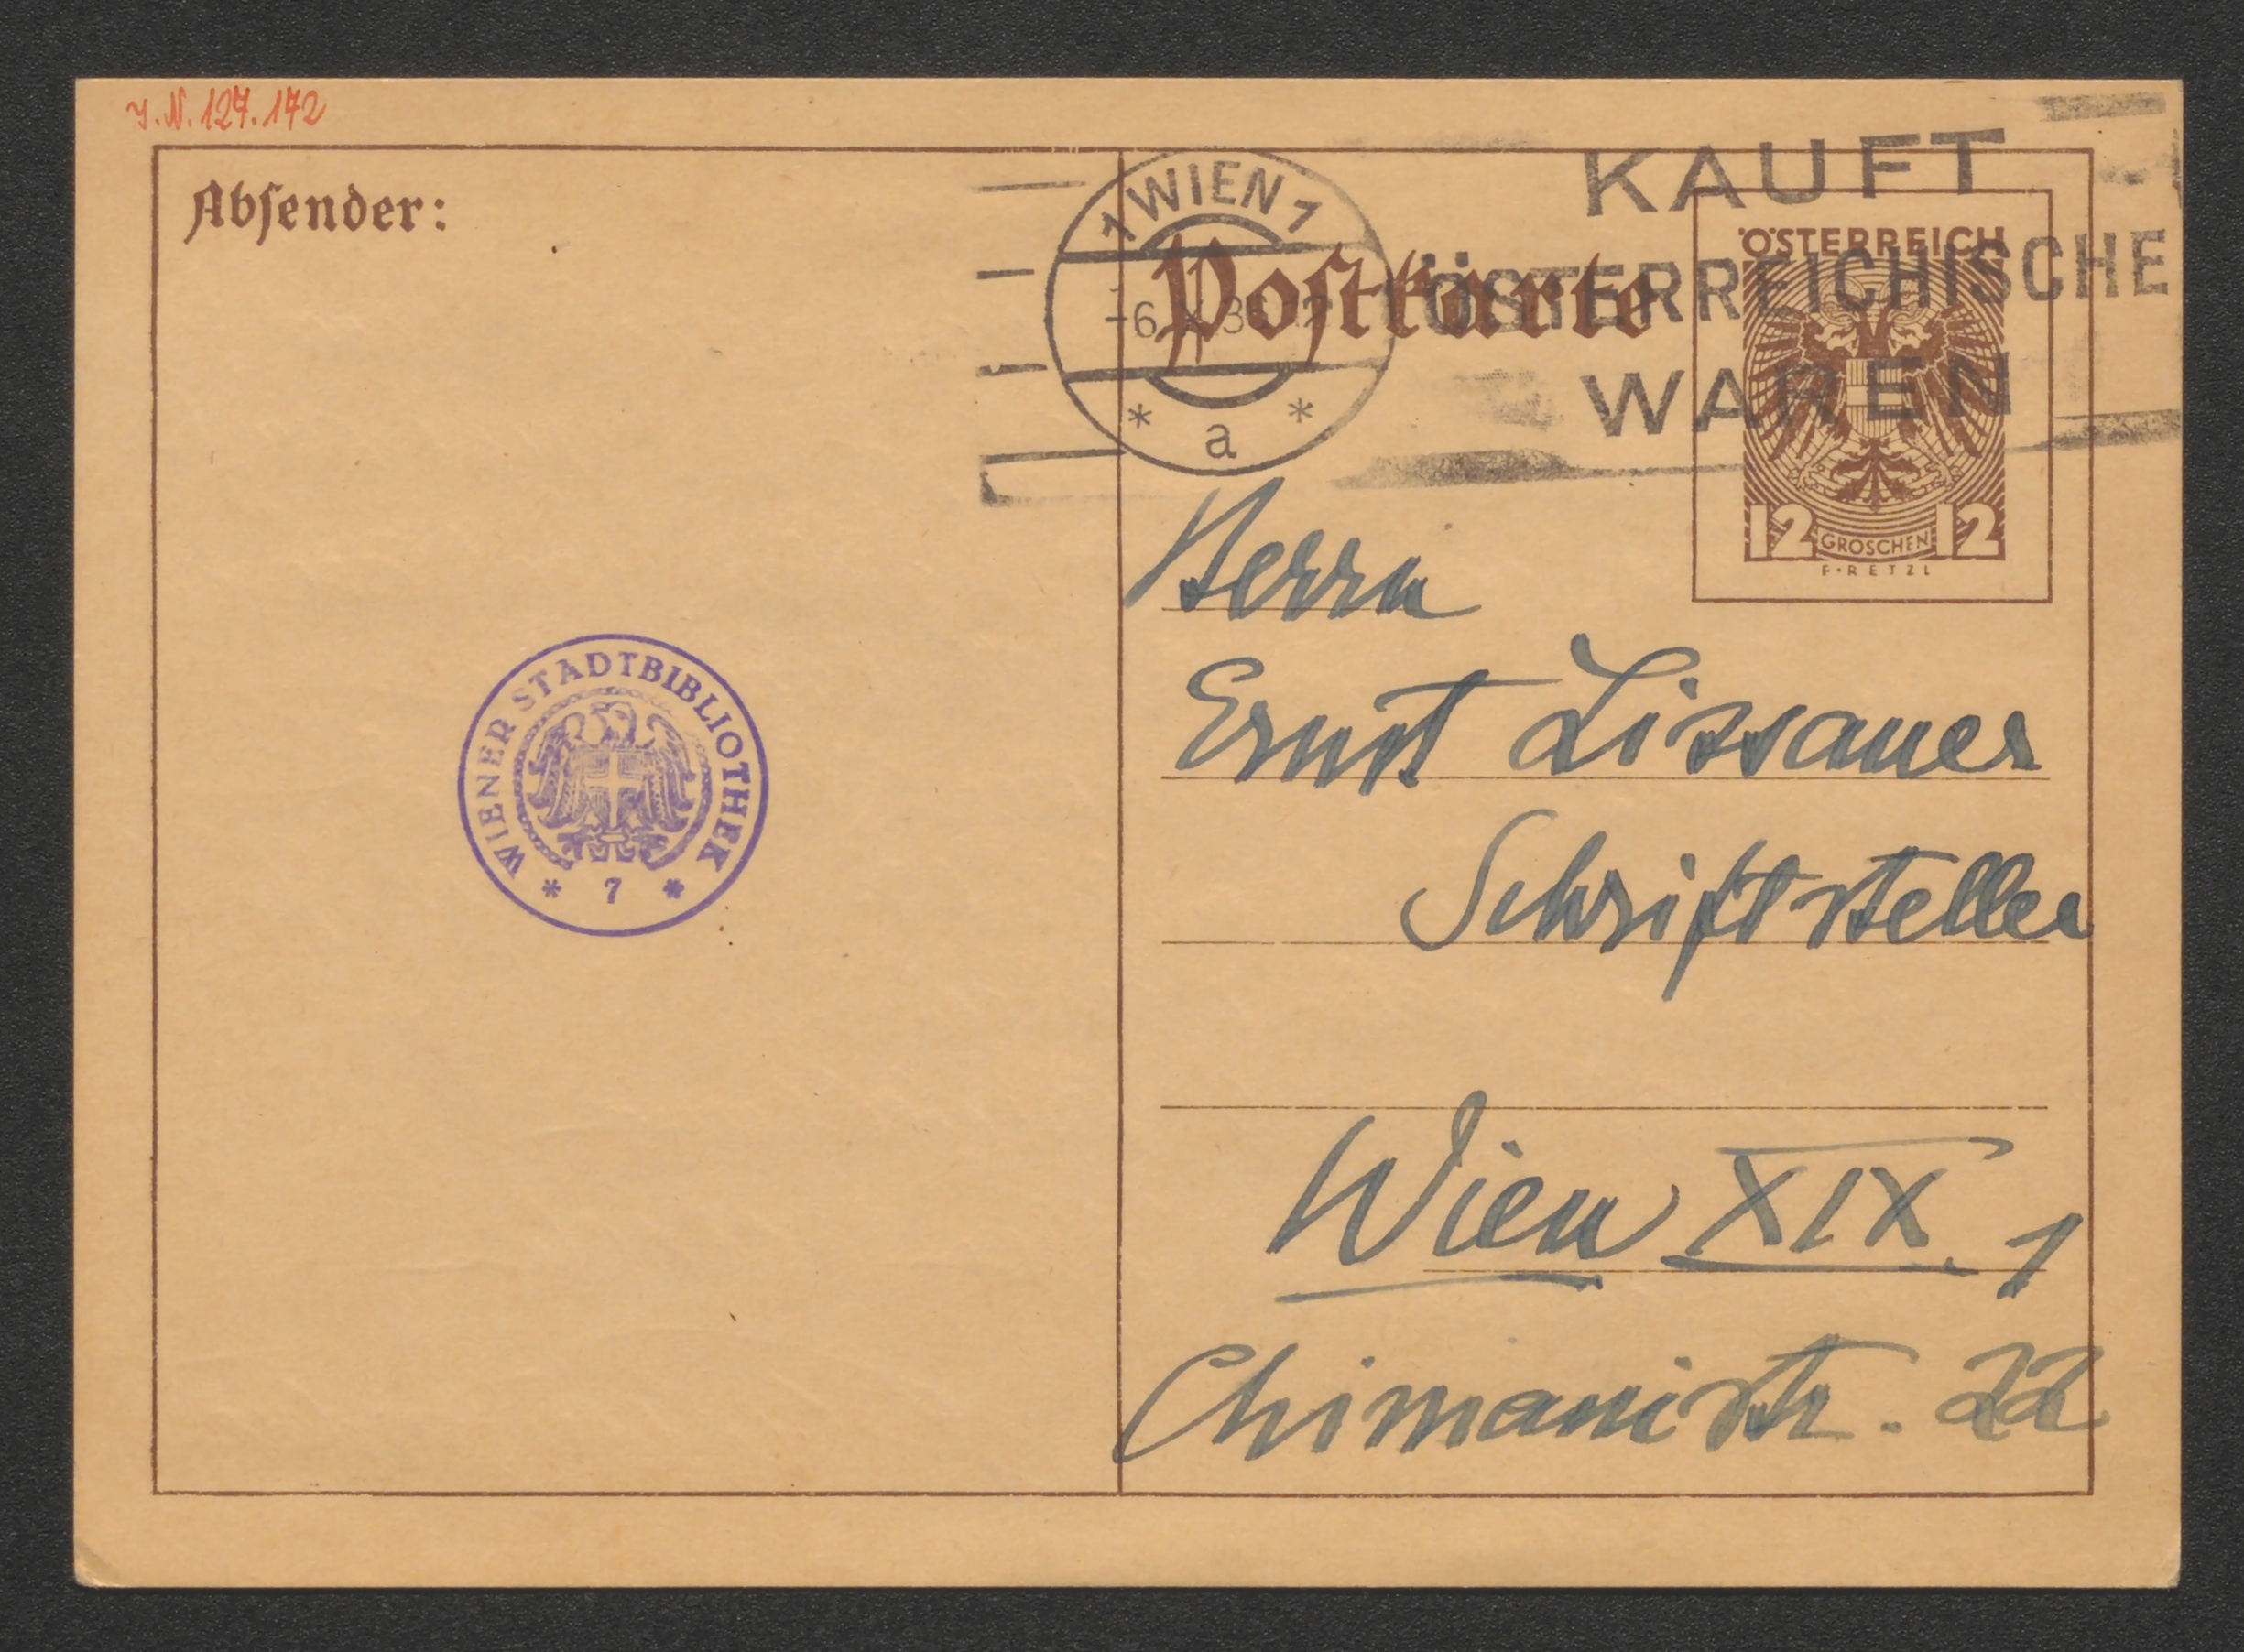 J.N. 127.172
Absender:
1 WIEN 1
a
KAUFT
ÖSTERREICHISCHE
WAREN
Postkarte
ÖSTERREICH
12 GROSCHEN 12
F·RETZL
WIENER STADTBIBLIOTHEK
* 7 *
Herrn
Ernst Lissauer
Schriftsteller
Wien XIX. 1
Chimanistr. 22